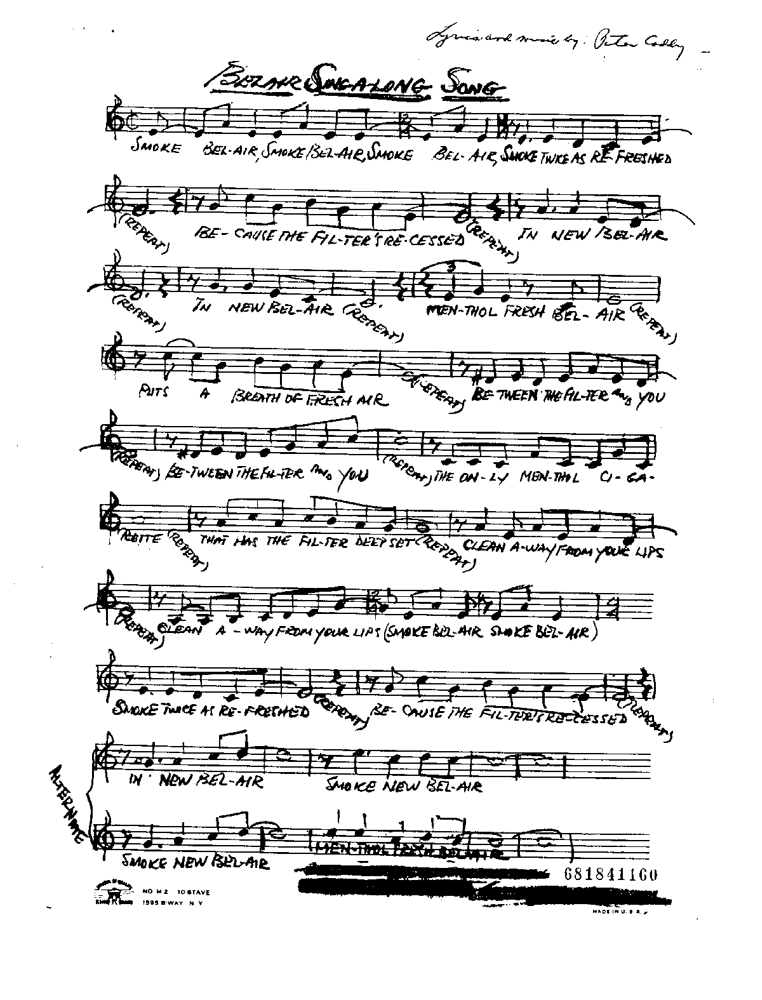 Lyrics and music by: Peter
BELAIR SING-A-LONG SONG
SMOKE BEL-AIR, SMOKE BEL-AIR, SMOKE BEL-AIR, SMOKE TWICE AS RE-FRESHED
(REPEAT) BE-CAUSE THE FIL-TER'S RE-CESSED (REPEAT) IN NEW BEL-AIR
(REPEAT) IN NEW BEL-AIR (REPEAT) 3 MEN-THOL FRESH BEL-AIR (REPEAT)
PUTS A BREATH OF FRESH AIR (REPEAT) BE-TWEEN THE FIL-TER AND YOU
(REPEAT) BE-TWEEN THE FIL-TER AND YOU (REPEAT) THE ON-LY MEN-THOL CI-GA-
RETTE (REPEAT) THAT HAS THE FIL-TER DEEP SET (REPEAT) CLEAN A-WAY FROM YOUR LIPS
(REPEAT) CLEAN A-WAY FROM YOUR LIPS (SMOKE BEL-AIR SMOKE BEL-AIR)
SMOKE TWICE AS RE-FRESHED (REPEAT) BE-CAUSE THE FIL-TER'S RE-CESSED (REPEAT)
ALTERNATE
IN NEW BEL-AIR SMOKE NEW BEL-AIR
SMOKE NEW BEL-AIR MEN-THOL FRESH BEL-AIR
681841160
NO M 2 10 STAVE
1595 B'WAY N Y
MADE IN U.S.A.